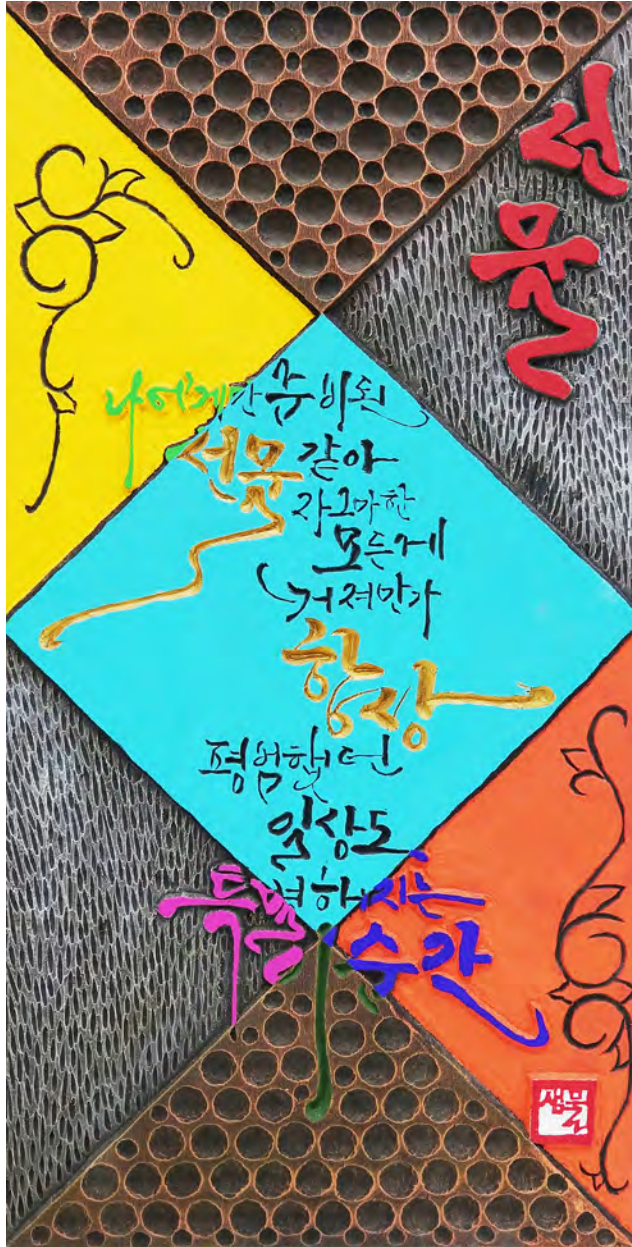 선물
나에게만 준비된
선물 같아
자그마한
모든게
커져만가
항상
평범했던
일상도
특별
지는
순간